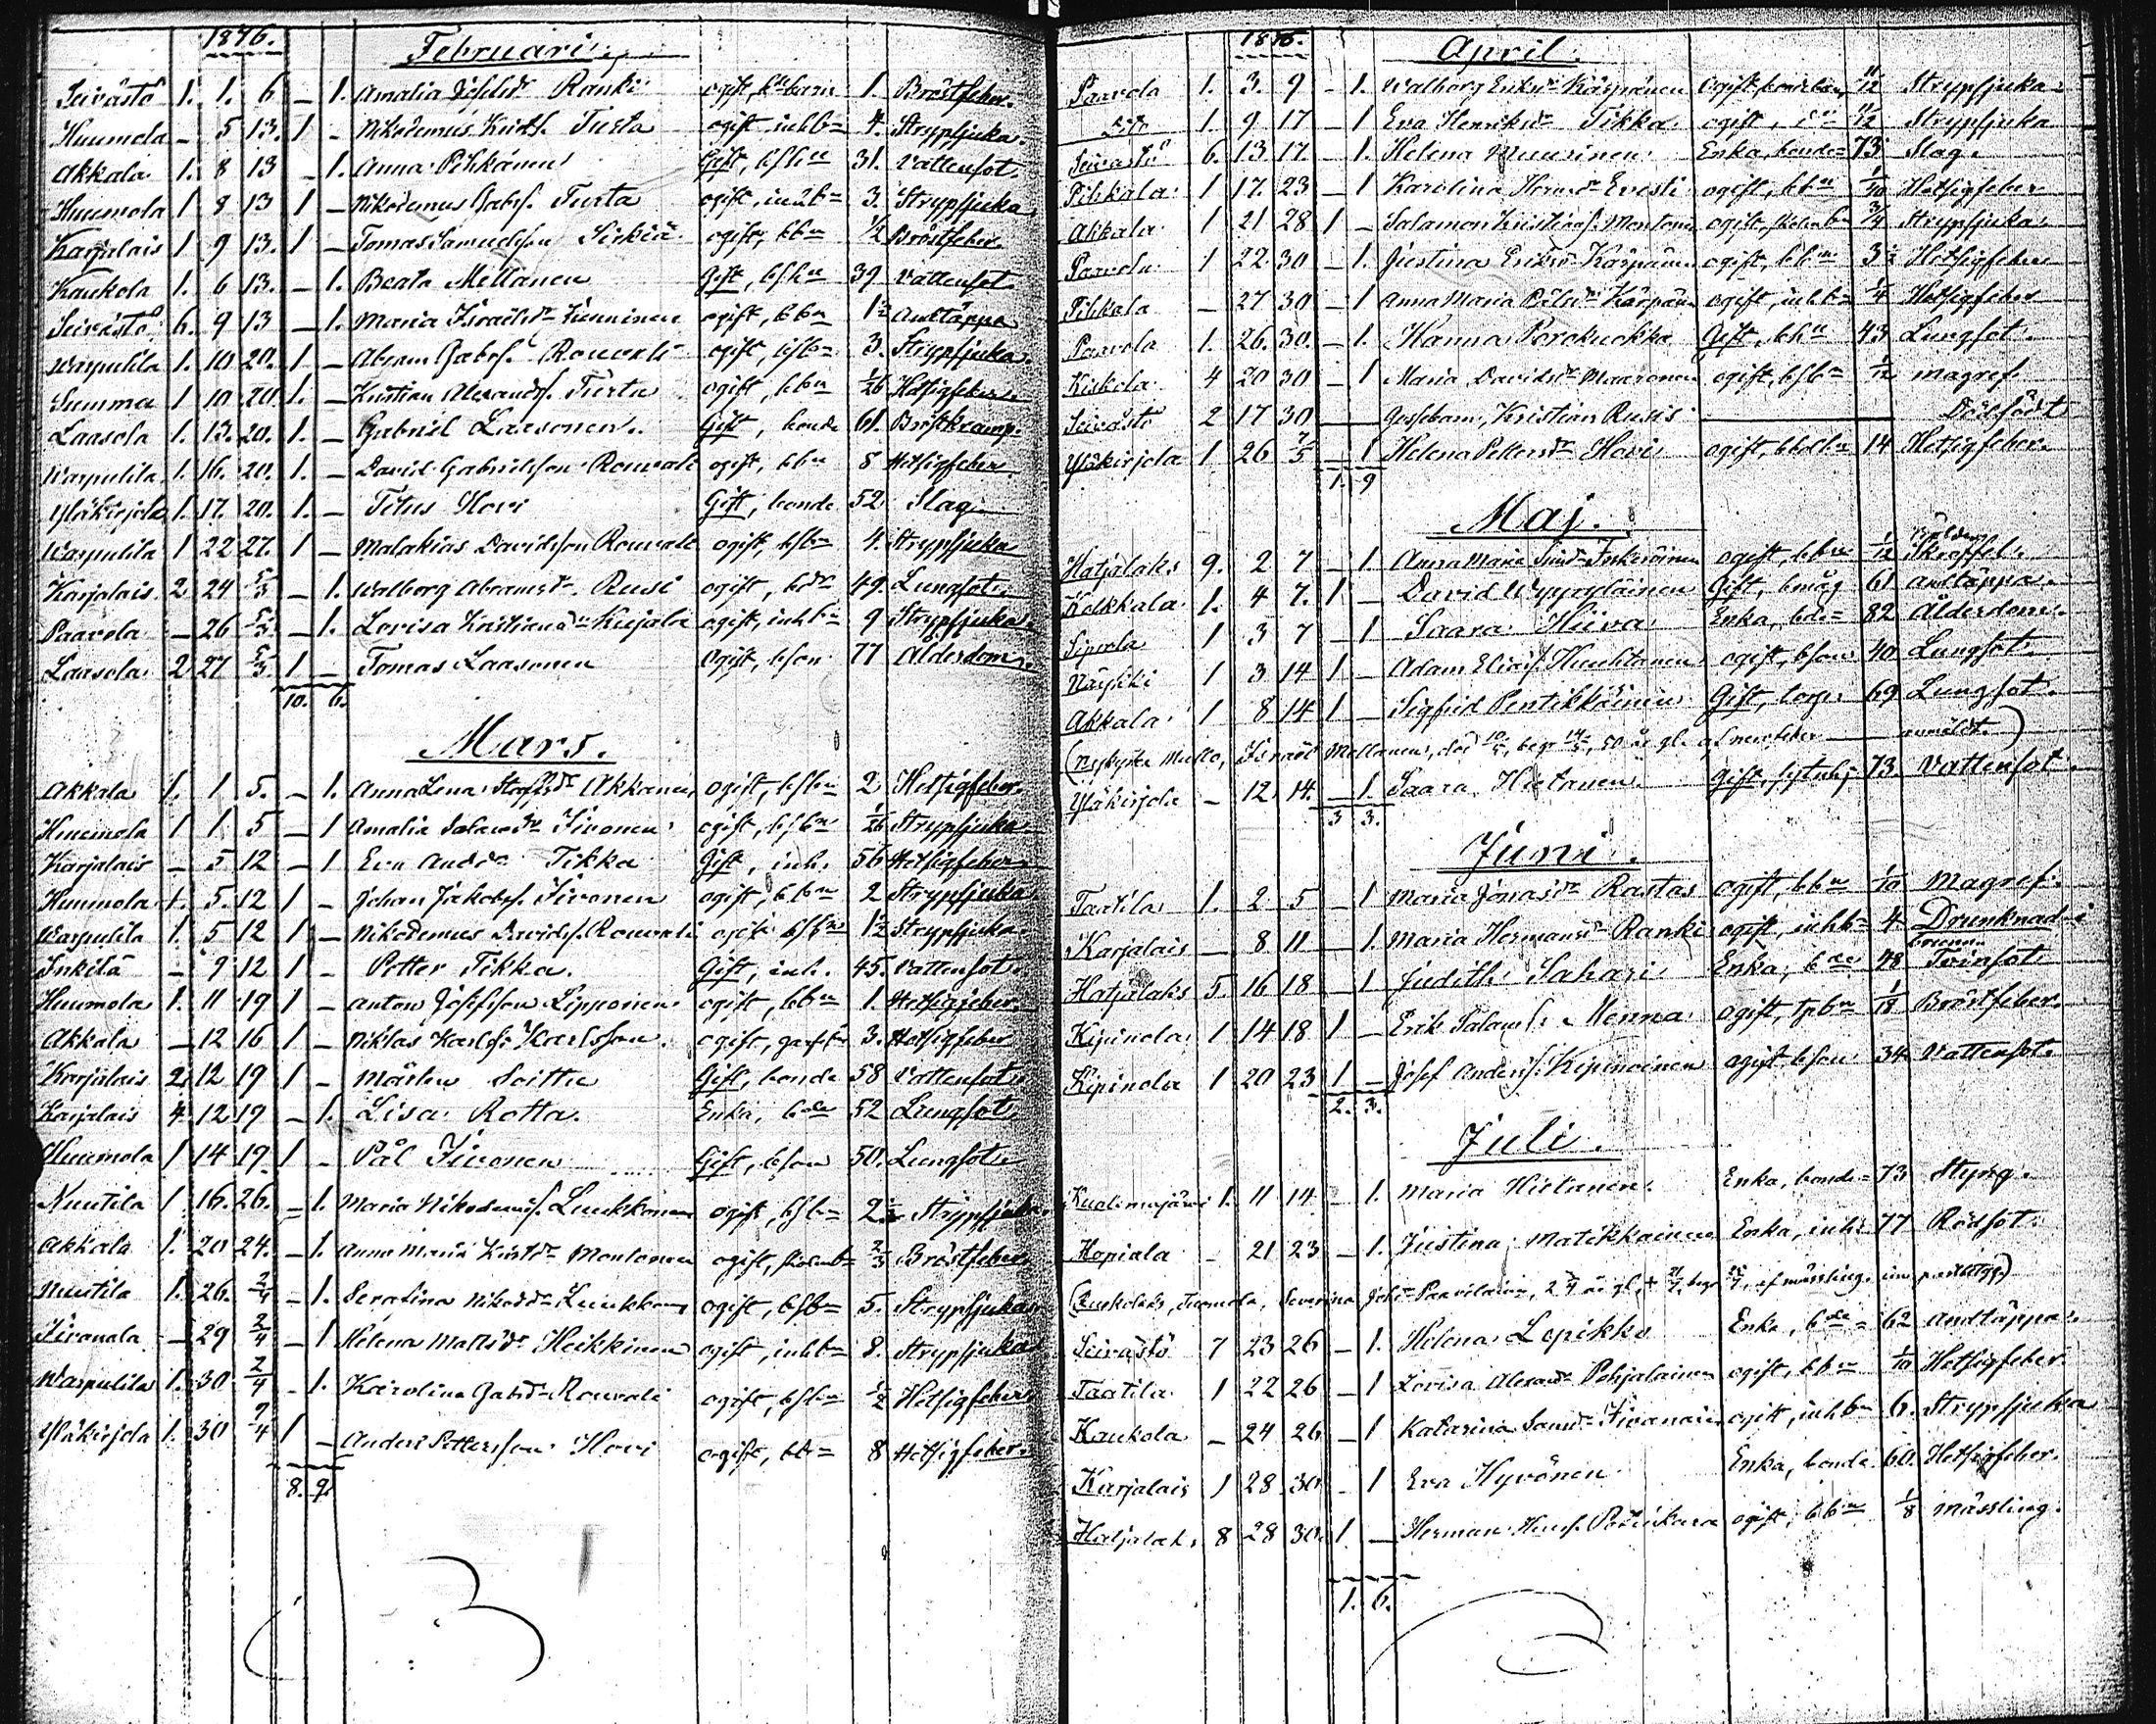 1876.
Februari.
Seivästö 1. 1. 6 – 1. Amalia Josefsdr Ranki ogift, bdebarn 1. Bröstfeber.
Huumola – 5 13. 1 – Nikodemus Turta ogift, inhbn 4. Strypsjuka.
Akkala 1. 8 13 – 1. Anna Pihkänen Gift, bshu 31. Vattensot.
Huumola 1 8 13 1 – Nikodemus Gabrs. Turta ogift, inhbn 3. Strypsjuka.
Karjalais 1 9 13. 1 – Tomas Samuelsson Sirkiä ogift, bbn 1/2 Bröstfeber
Kaukola 1. 6 13. – 1. Beata Mellanen Gift, bshu 39 Vattensot.
Seivästö 6. 9 13 – 1. Maria Israelsdr Kinninen ogift, bbn 1 1/2 Andtäppa
Warpulila 1. 10 20. 1 – Abram Gabrs. Rouvali ogift, bsbn 3. Strypsjuka.
Summa 1 10 20. 1. – Kristian Alexands. Turta ogift, bbn 1/26 Hetsigfeber.
Laasola 1. 13. 20. 1. – Gabriel Laasonen. Gift, bonde 61. Bröstkramp.
Warpulila 1. 16. 20. 1. – David Gabrielsson Rouvali ogift, bbn 8 Hetsigfeber
Yläkirjola 1. 17. 20. 1. – Titus Hovi Gift, bonde 52. Slag.
Warpulila 1 22 27. 1 – Malakias Davidsson Rouvali ogift, bsbn 4. Strypsjuka
Karjalais 2 24 5/3 – 1. Walborg Abramsdr Rusi ogift, bdr 49. Lungsot.
Paavola – 26 5/3. – 1. Lovisa Kristiansdr Kirjola ogift, inhbn 9 Strypsjuka
Laasola 2 27 5/3. 1 – Tomas Laasonen Ogift, bson 77 Ålderdom.
10. 6.
Mars.
Akkala 1. 1 5. – 1. Anna Lena Staffsdr Akkanen ogift, bsbn 2 Hetsigfeber.
Huumola 1 1 5 – 1 Amalia Salamsdr Sivonen ogift, bsbn 1/26 Strypsjuka
Karjalais – 5 12 – 1 Eva Andsdr Tikka Gift, inh. 56 Hetsigfeber
Huumola 1. 5. 12 1 – Johan Jakobs. Sivonen ogift, bbn 2 Strypsjuka
Warpulila 1. 5 12 1 – Nikodemus Davids. Rouvali ogift bsbn 1 1/2 Strypsjuka.
Inkilä – 9 12 1 – Petter Tikka. Gift, inh. 45. Vattensot.
Huumola 1. 11 19 1 – Anton Josefsson Lipponen ogift, bbn 1. Hetsigfeber.
Akkala – 12 16 1 – Niklas Karlss. Karlsson. ogift, 3. Hetsigfeber
Karjalais 2. 12 19 1 – Mårten Soittu Gift, bonde 58 Vattensot.
Karjalais 4. 12 19 – 1. Lisa Rotta. Enka, bde 52 Lungsot
Huumola 1 14 19. 1 – Pål Sivonen Gift, bson 50. Lungsot.
Nuutila 1 16. 26. – 1. Maria Nikodemus. Luukkonen ogift, bsbn 2 1/2 Strypsjuka.
Akkala 1. 20 24. – 1. Anna Maria Kristdr Montonen ogift, 2/3 Bröstfeber.
Nuutila 1. 26. 2/4 – 1. Serafina Nikodsdr Luukkonen ogift, bsbn 5. Strypsjuka
Sivonala – 29 2/4 – 1 Helena Mattsdr Heikkinen ogift, inhbn 8. Strypsjuka
Warpulila 1. 30 2/4 – 1. Karolina Gabrdr Rouvali ogift, bsbn 1/2 Hetsigfeber
Yläkirjola 1. 30 9/4 1 – Anders Pettersson Hovi ogift, bbn 8 Hetsigfeber.
8. 9.
1876.
April.
Paavola 1. 3. 9 – 1. Walborg Eriksdr Kärpänen Ogift bondebarn 11/12 Strypsjuka
Dito 1. 9 17 – 1 Eva Henriksdr Tikka ogift, do 11/12 Strypsjuka
Seivästö 6. 13 17. – 1. Helena Muurinen Enka, bonde= 73 Slag.
Pihkala 1 17. 23 – 1 Karolina Evesti ogift, bbn 1/10 Hetsigfeber
Akkala 1 21 28 1 – Salamon Kristians. Montonen ogift, 3/4 Strypsjuka.
Paavola 1 22. 30 – 1. Justina Eriksdr Kärpänen ogift, bbn 3 1/2 Hetsigfeber
Pihkala – 27 30 – 1 Anna Maria Pålsdr Kärpänen ogift, inhbn 1/4 Hetsigfeber
Paavola 1. 26. 30. – 1. Hanna Porokuokka Gift, bhu 43 Lungsot.
Kiskola 4 20 30 – 1 Maria Davidsdr Maaronen ogift, bsbn 1/12 Magref
Seivästö 2 17 30 — Gossebarn, Kristian Rusis — Dödfödt
Yläkirjola 1 26 7/5 – 1 Helena Pettersdr Hovi ogift, 14 Hetsigfeber.
1. 9
Maj.
Hatjalaks 9. 2 7 – 1 Anna Maria Inkeröinen ogift, bbn 1/12 Skroffel.
Kolkkala 1. 4 7. 1 – David Wyyryläinen Gift, bmåg 61 Andtäppa.
Sipola 1 3 7 – 1 Saara Hiiva Enka, bde= 82 Ålderdom.
Näykki 1 3 14 1 – Adam Elias. Huuhtanen ogift, bson 40 Lungsot.
Akkala 1 8 14 1 – Sigfrid Pentikkäinen Gift, torp. 69 Lungsot.
(Nykyrka Mellanen, död 10/5, begr 14/5, 50 år gl. af nervfeber — anmäldt.)
Yläkirjola – 12 14. – 1. Saara Hietanen Gift, 73. Vattensot.
3 3.
Juni.
Taatila 1. 2 5 – 1 Maria Jonasdr Rastas ogift, bbn 1/10 Magref.
Karjalais – 8 11 – 1. Maria Hermansdr Ranki ogift, inhbn 4 Drunknad i brunn.
Hatjalaks 5. 16 18 – 1 Judith Sahari Enka, bde 48 Tvinsot
Kipinola 1 14 18 1 – Erik Salams. Menna ogift, tpbn 1/18 Bröstfeber.
Kipinola 1 20 23 1 – Josef Anders. Kipinoinen ogift bson 34 Vattensot.
2. 3.
Juli.
Kuolemajärvi 1. 11 14 – 1. Maria Hietanen. Enka, bonde= 73 Styng.
Kopiala – 21 23 – 1. Justina Matikkainen Enka, inh. 77 Rödsot.
Seivästö 7 23 26 – 1. Helena Lepikko Enka, bde= 62 Andtäppa.
Taatila 1 22 26 – 1 Lovisa Alexandr Pohjalainen ogift, bbn 1/10 Hetsigfeber.
Kaukola – 24 26 – 1 Katarina Samdr Sivonen ogift, inhbn 6. Strypsjuka
Karjalais 1 28 30 – 1 Eva Hyvönen Enka, bonde 60. Hetsigfeber.
Hatjalaks 8 28 30. 1. – Herman ogift, bbn 1/8 Mässling.
1. 6.